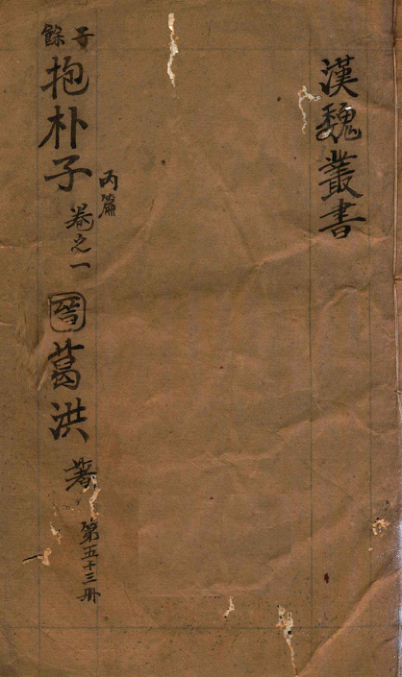 漢魏叢書
子餘
抱朴子 丙篇 卷之一 晋 葛洪 著 第五十三册